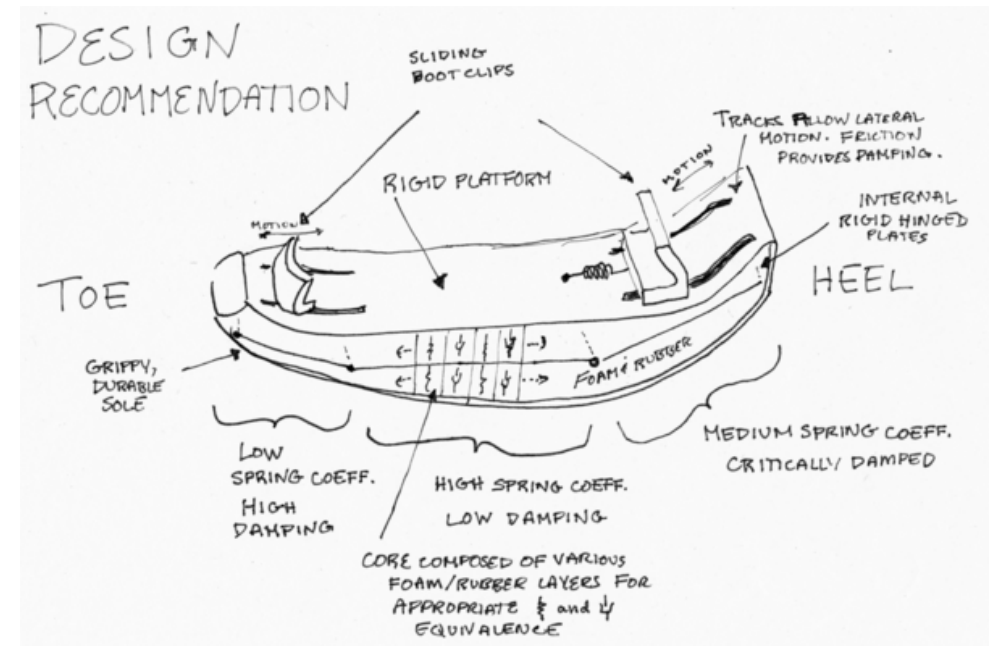 DESIGN
RECOMMENDATION
SLIDING
BOOT CLIPS
TRACKS ALLOW LATERAL
MOTION. FRICTION
PROVIDES DAMPING.
MOTION
RIGID PLATFORM
INTERNAL
RIGID HINGED
PLATES
MOTION
TOE
HEEL
GRIPPY,
DURABLE
SOLE
FOAM & RUBBER
LOW
SPRING COEFF.
HIGH
DAMPING
HIGH SPRING COEFF.
LOW DAMPING
MEDIUM SPRING COEFF.
CRITICALLY DAMPED
CORE COMPOSED OF VARIOUS
FOAM/RUBBER LAYERS FOR
APPROPRIATE and
EQUIVALENCE